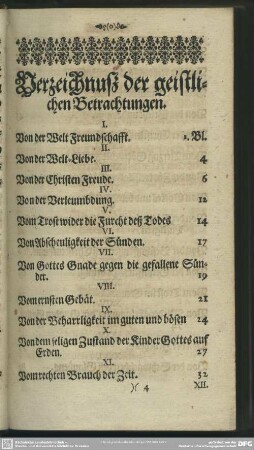 Verzeichnuß der geistli-
chen Betrachtungen.
I.
Von der Welt Freundschafft. 1. Bl.
II.
Von der Welt-Liebe. 4
III.
Von der Christen Freude. 6
IV.
Von der Verleumbdung. 12
V.
Vom Trost wider die Furcht deß Todes 14
VI.
Von Abscheuligkeit der Sünden. 17
VII.
Von Gottes Gnade gegen die gefallene Sün-
der. 19
VIII.
Vom ernsten Gebät. 21
IX.
Von der Beharrligkeit im guten und bösen 24
X.
Von dem seligen Zustand der Kinder Gottes auf
Erden. 27
XI.
Vom rechten Brauch der Zeit. 32
)( 4 XII.
DFG